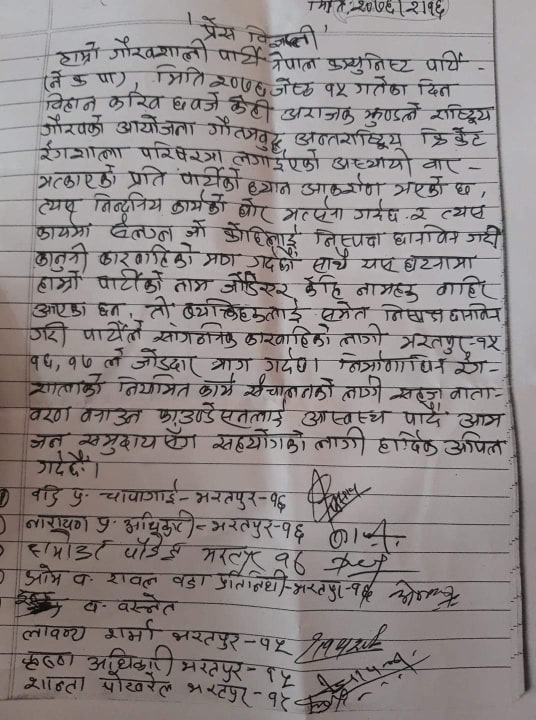 मिति:२०७६/२/१६
प्रेस विज्ञप्ती
हाम्रो गौरवशाली पार्टी नेपाल कम्युनिष्ट पार्टी -
(ने क पा), मिति २०७६ जेष्ठ १५ गतेका दिन
विहान करिव ६ वजे केही अराजक झुण्डले राष्ट्रिय
गौरवको आयोजना गौतमबुद्ध अन्तराष्ट्रिय क्रिकेट
रंगशाला परिषरमा लगाईएको अस्थायी वार -
भत्काएको प्रति पार्टीको ध्यान आकर्षण भएको छ,
त्यस निन्दनिय कार्यको घोर भर्त्सना गर्दछ र त्यस
कार्यमा संलग्न जो कोहिलाई निस्पक्ष छानविन गरी
कानुनी कारवाहिको माग गर्दछौं साथै यस घटनामा
हाम्रो पार्टीको नाम जोडिएर केहि नामहरु वाहिर
आएका छन, ती व्यक्तिहरुलाई समेत निष्पक्ष छानविन
गरी पार्टीले सांगठनिक कारवाहिको लागी भरतपुर-१५
१६, १७ ले जोडदार माग गर्दछ। निर्माणाधिन रंग-
शालाको नियमित कार्य संचालनको लागी सहज वाता-
वरण वनाउन फाउण्डेसनलाई आस्वस्थ पार्दै आम
जन समुदाय संग सहयोगको लागी हार्दिक अपिल
गर्दछौं।
वद्रि प्र. चापागाई - भरतपुर-१६
नारायण प्र. अधिकारी - भरतपुर-१६
पौडेल भरतपुर १६
ओम व. रावल वडा प्रतिनिधी - भरतपुर-१५
व. वस्नेत
लावण्य शर्मा भरतपुर - १५
कृष्ण अधिकारी भरतपुर - १५
शान्ता पोखरेल भरतपुर - १५